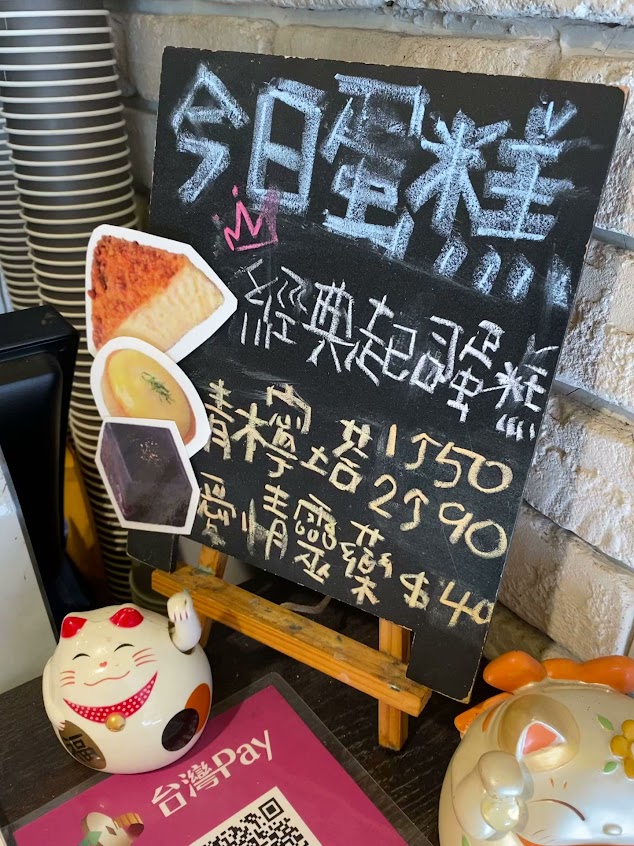 今日蛋糕
經典起司蛋糕
青檸塔 1个50
2个90
愛情靈巫藥 $40
福
台灣Pay